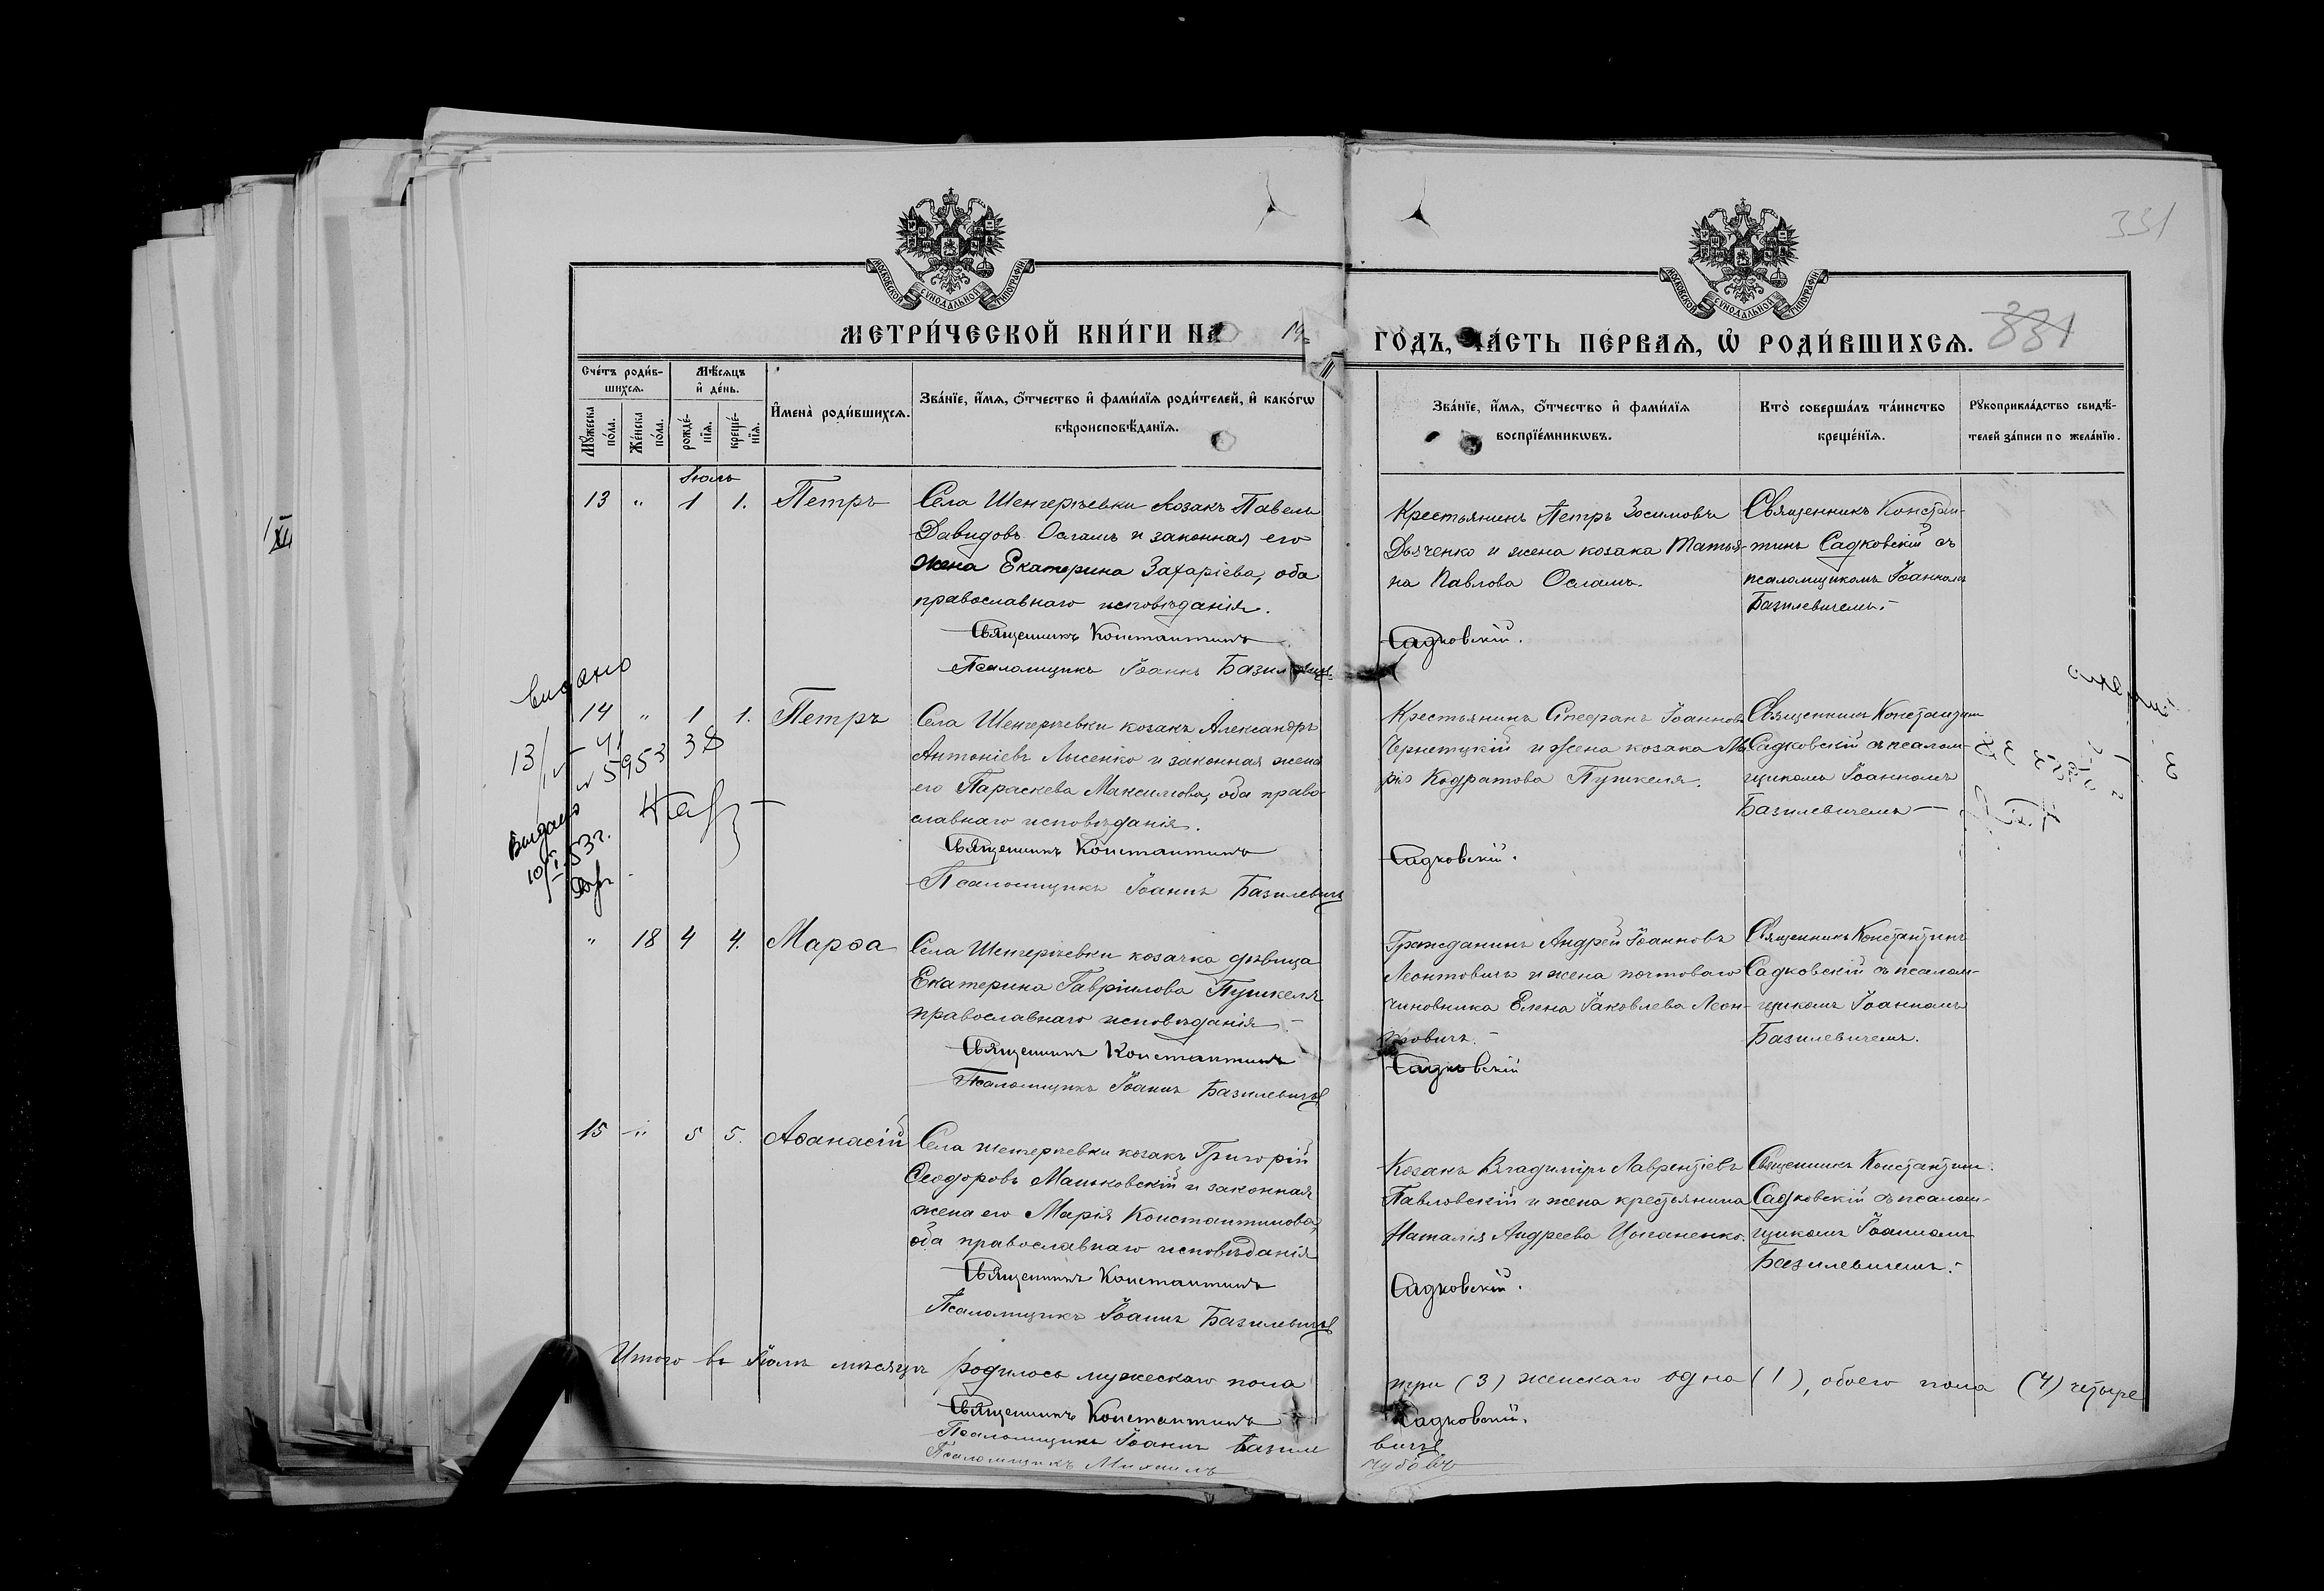 331
МОСКОВСКОЙ СѴНОДАЛЬНОЙ ТИПОГРАФІИ
МОСКОВСКОЙ СѴНОДАЛЬНОЙ ТИПОГРАФІИ
МЕТРИ́ЧЕСКОЙ КНИ́ГИ НА
ГО́ДЪ, ЧА́СТЬ ПЕ́РВАѦ, Ѡ РОДИ́ВШИХСѦ.
331
Сче́тъ роди́в-
шихсѧ.
Мꙋ́жеска по́ла.
Же́нска по́ла.
Мѣ́сѧцъ
и҆ де́нь.
рожде́-
нїѧ.
креще́-
нїѧ.
И҆мена̀ роди́вшихсѧ.
Зва́нїе, и҆́мѧ, ѻ҆́тчество и҆ фами́лїѧ роди́телей, и҆ како́гѡ
вѣроисповѣ́данїѧ.
Зва́нїе, и҆́мѧ, ѻ҆́тчество и҆ фами́лїѧ
воспрїе́мникѡвъ.
Кто̀ соверша́лъ та́инство
креще́нїѧ.
Рꙋкоприкла́дство свидѣ́-
телей за́писи по жела́нїю.
Іюль
13 " 1 1. Петръ
Села Шенгерѣевки Козакъ Павелъ
Давидовъ Осламъ и законная его
жена Екатерина Захаріева, оба
православнаго исповѣданія.
Священникъ Константинъ
Псаломщикъ Іоаннъ Базилевичъ
Крестьянинъ Петръ Зосимовъ
Дьяченко и жена козака Татья-
на Павлова Осламъ.
Садковскій.
Священникъ Констан-
тинъ Садковскій съ
псаломщикомъ Іоанномъ
Базилевичемъ.-
выдано
14 " 1 1. Петръ
13/ V 41
№ 5953 38
Выдано
10/I 53 г.
Села Шенгерѣевки козакъ Александръ
Антоніевъ Лысенко и законная жена
его Параскева Максимова, оба право-
славнаго исповѣданія.
Священникъ Константинъ
Псаломщикъ Іоаннъ Базилевичъ
Крестьянинъ Стефанъ Іоанновъ
Чернецкій и жена козака Ма
рія Кодратова Пушкеля.
Садковскій.
Священникъ Константинъ
Садковскій съ псалом-
щикомъ Іоанномъ
Базилевичемъ —
" 18 4 4. Марѳа
Села Шенгерѣевки козачка дѣвица
Екатерина Гавріилова Пушкеля
православнаго исповѣданія.-
Священникъ Константинъ
Псаломщикъ Іоаннъ Базилевичъ
Гражданинъ Андрей Іоанновъ
Леонтовичъ и жена почтоваго
чиновника Елена Іаковлева Леон-
товичъ.-
Садковскій
Священникъ Константинъ
Садковскій съ псалом-
щикомъ Іоанномъ
Базилевичемъ.
15 " 5 5. Аѳанасій
Села Шенгерѣевки козакъ Григорій
Ѳеодоровъ Маньковскій и законная
жена его Марія Константинова,
оба православнаго исповѣданія
Священникъ Константинъ
Псаломщикъ Іоаннъ Базилевичъ
Козакъ Владиміръ Лаврентіевъ
Павловскій и жена крестьянина
Наталія Андреева Цыганенко.
Садковскій.
Священникъ Константинъ
Садковскій съ псалом-
щикомъ Іоанномъ
Базилевичемъ.-
Итого въ Іюлѣ мѣсяцѣ родилось мужескаго пола три (3) женскаго одна (1), обоего пола (4) четыре
Священникъ Константинъ Садковскій.
Псаломщикъ Іоаннъ Базилевичъ
Псаломщикъ Михаилъ